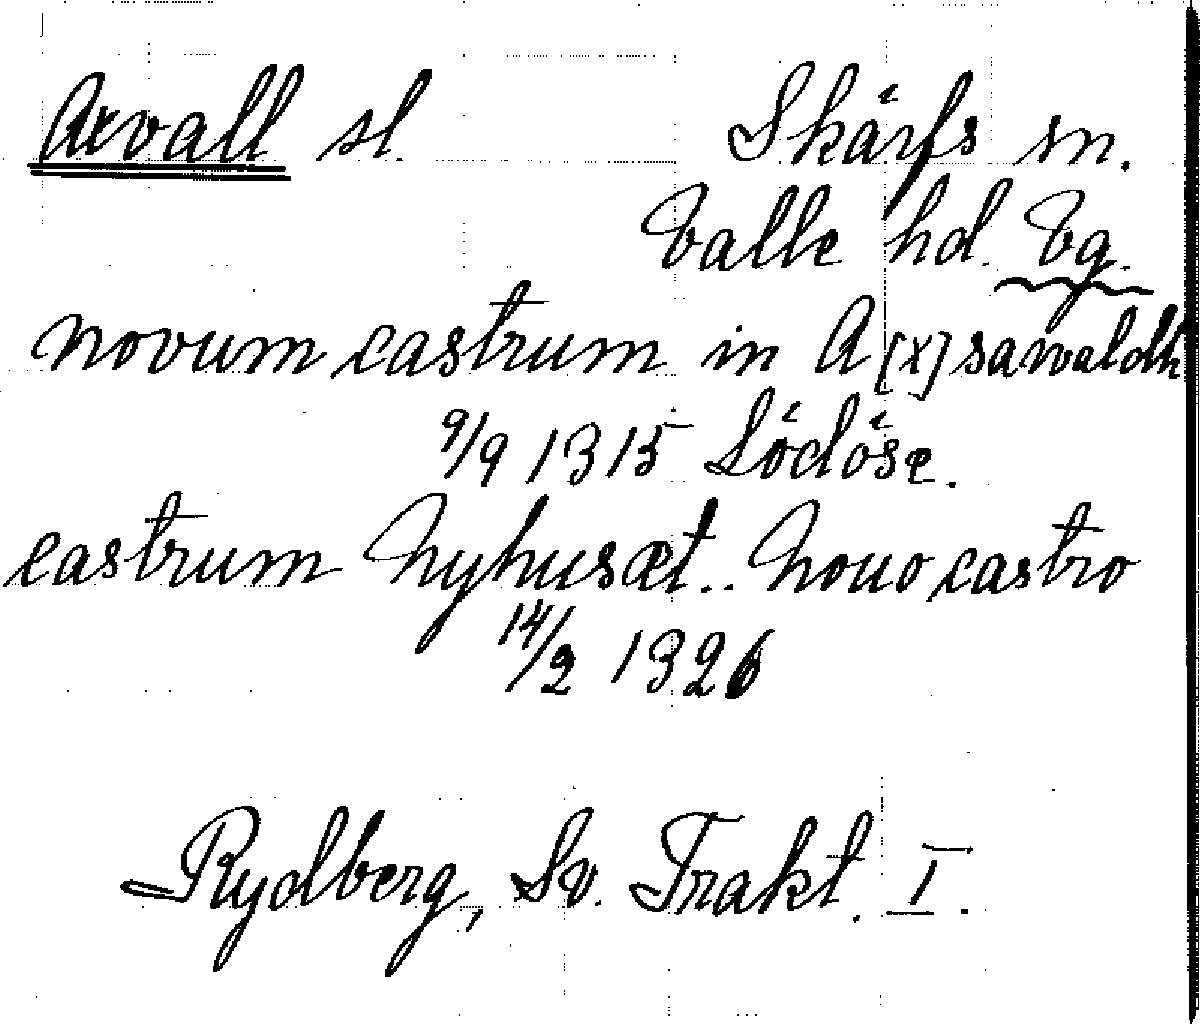 Axvall sl. Skärfs sn.
Valle hd. Vg.
novum castrum in A[x]sawaldh
9/9 1315 Lödöse.
castrum Nyhusæt.. Nouo castro
14/2 1326
Rydberg, Sv. Trakt. I.